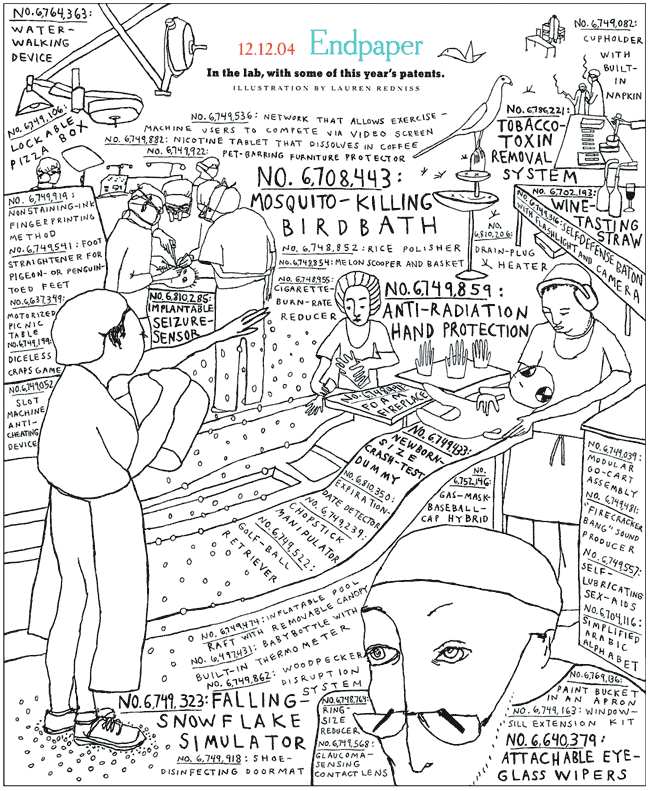 NO. 6,764,363:
WATER-
WALKING
DEVICE
12.12.04 Endpaper
In the lab, with some of this year's patents.
ILLUSTRATION BY LAUREN REDNISS
NO. 6,749,082:
CUPHOLDER
WITH
BUILT-
IN
NAPKIN
NO. 6,749,106:
LOCKABLE
PIZZA BOX
NO. 6,749,536: NETWORK THAT ALLOWS EXERCISE-
MACHINE USERS TO COMPETE VIA VIDEO SCREEN
NO. 6,749,882: NICOTINE TABLET THAT DISSOLVES IN COFFEE
NO. 6,749,922: PET-BARRING FURNITURE PROTECTOR
NO. 6,786,221:
TOBACCO-
TOXIN
REMOVAL
SYSTEM
NO. 6,708,443:
MOSQUITO-KILLING
BIRDBATH
NO. 6,702,193:
WINE-
TASTING
STRAW
NO. 6,749,919:
NONSTAINING-INK
FINGERPRINTING
METHOD
NO. 6,749,541: FOOT
STRAIGHTENER FOR
PIGEON- OR PENGUIN-
TOED FEET
NO. 6,637,349:
MOTORIZED
PICNIC
TABLE
DICELESS
CRAPS GAME
NO. 6,749,052
SLOT
MACHINE
ANTI-
CHEATING
DEVICE
SELF-DEFENSE BATON
WITH FLASHLIGHT AND CAMERA
NO. 6,748,852: RICE POLISHER
NO. 6,748,854: MELON SCOOPER AND BASKET
NO.
6,810,206:
DRAIN-PLUG
HEATER
NO. 6,748,955:
CIGARETTE-
BURN-RATE
REDUCER
NO. 6,810,285:
IMPLANTABLE
SEIZURE-
SENSOR
NO. 6,749,859:
ANTI-RADIATION
HAND PROTECTION
FOAM
FIREPLACE
NO. 6,749,433:
NEWBORN-
SIZE
CRASH-TEST
DUMMY
NO. 6,810,350:
EXPIRATION-
DATE DETECTOR
NO. 6,749,239:
CHOPSTICK
MANIPULATOR
NO. 6,749,522:
GOLF-BALL
RETRIEVER
NO.
6,752,146:
GAS-MASK-
BASEBALL-
CAP HYBRID
NO. 6,749,039:
MODULAR
GO-CART
ASSEMBLY
NO. 6,749,481:
"FIRECRACKER
BANG" SOUND
PRODUCER
NO. 6,749,557:
SELF-
LUBRICATING
SEX-AIDS
NO. 6,704,116:
SIMPLIFIED
ARABIC
ALPHABET
NO. 6,749,474: INFLATABLE POOL
RAFT WITH REMOVABLE CANOPY
NO. 6,497,431: BABYBOTTLE WITH
BUILT-IN THERMOMETER
NO. 6,749,862: WOODPECKER
DISRUPTION
SYSTEM
NO. 6,749,323: FALLING-
SNOWFLAKE
SIMULATOR
NO. 6,749,918: SHOE-
DISINFECTING DOORMAT
NO. 6,748,764:
RING-
SIZE
REDUCER
NO. 6,749,568:
GLAUCOMA-
SENSING
CONTACT LENS
NO. 6,769,136:
PAINT BUCKET
IN AN APRON
NO. 6,749,163: WINDOW-
SILL EXTENSION KIT
NO. 6,640,379:
ATTACHABLE EYE-
GLASS WIPERS